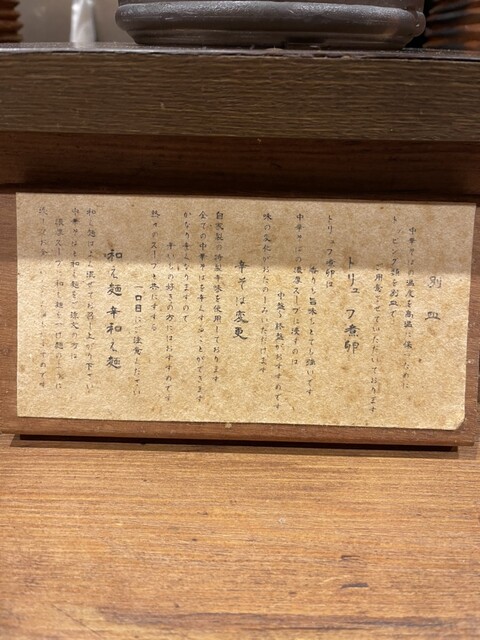 別皿
中華そばの温度を高温に保つために
トッピング類を別皿で
ご用意させていただいております
トリュフ煮卵
トリュフ煮卵は
香りも旨味もとても強いです
中華そばの濃厚スープに浸すのは
中盤〜終盤がおすすめです
味の変化がおたのしみいただけます
辛そば変更
自家製の特製辛味を使用しております
全ての中華そばを辛くすることができます
かなり辛くなりますので
辛いもの好きの方におすすめです
熱々のスープと共にすする
一口目にご注意ください
和え麺 辛和え麺
和え麺はよく混ぜてお召し上がり下さい
中華そばと和え麺をご注文の方は
濃厚スープに和え麺をつけ麺のように